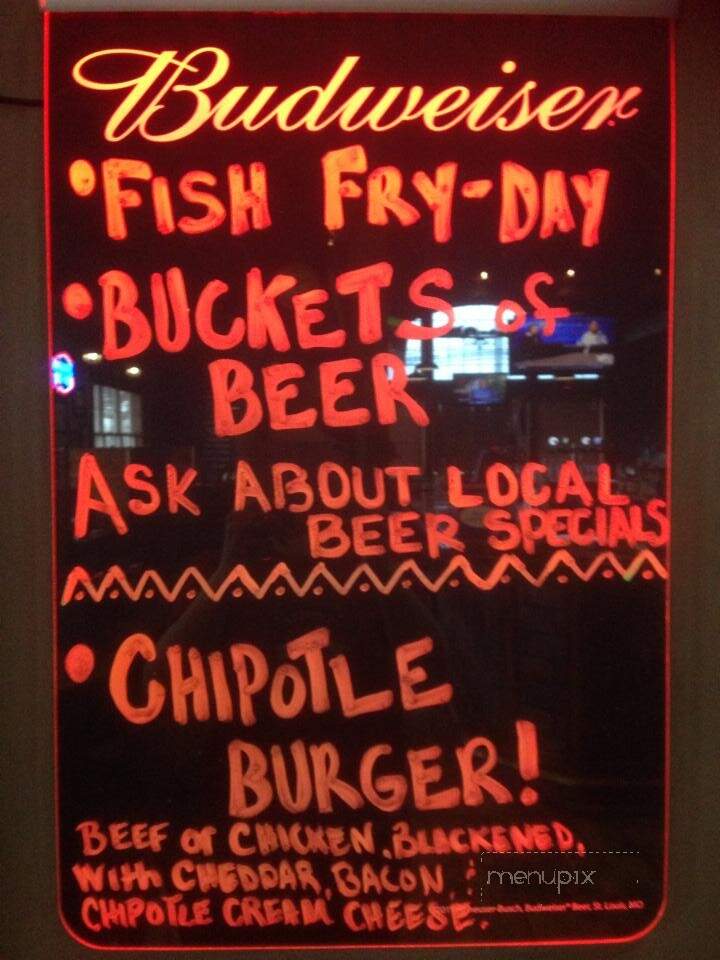 Budweiser
•FISH FRY-DAY
•BUCKETS of
BEER
ASK ABOUT LOCAL
BEER SPECIALS
•CHIPOTLE
BURGER!
BEEF or CHICKEN, BLACKENED,
With CHEDDAR, BACON, &
menupix
CHIPOTLE CREAM CHEESE.
-Busch, Budweiser® Beer, St. Louis, MO